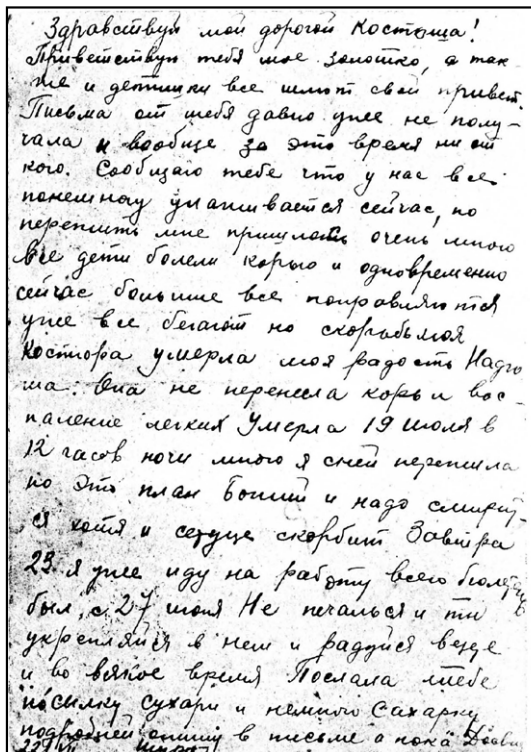 Здравствуй мой дорогой Костюша!
Приветствую тебя мое золотко, а так
же и детишки все шлют свой привет.
Письма от тебя давно уже не полу-
чала и вообще за это время ни от
кого. Сообщаю тебе что у нас все
понемногу улаживается сейчас, но
пережить мне пришлось очень много
Все дети болели корью и одновременно
сейчас больше все поправляются
уже все бегают но скорбь моя
умерла моя радость Надю
ша. Она не перенесла корь и вос-
паление легких Умерла 19 июля в
12 часов ночи много я с ней пережила
но это план Божий и надо смирит
ся хотя и сердце скорбит Завтра
23. я уже иду на работу всего
был, с 27 июня Не печалься и ты
укрепляйся в нем и радуйся везде
и во всякое время Послала тебе
посылку сухари и немного сахарку
подробней опишу в письме а пока